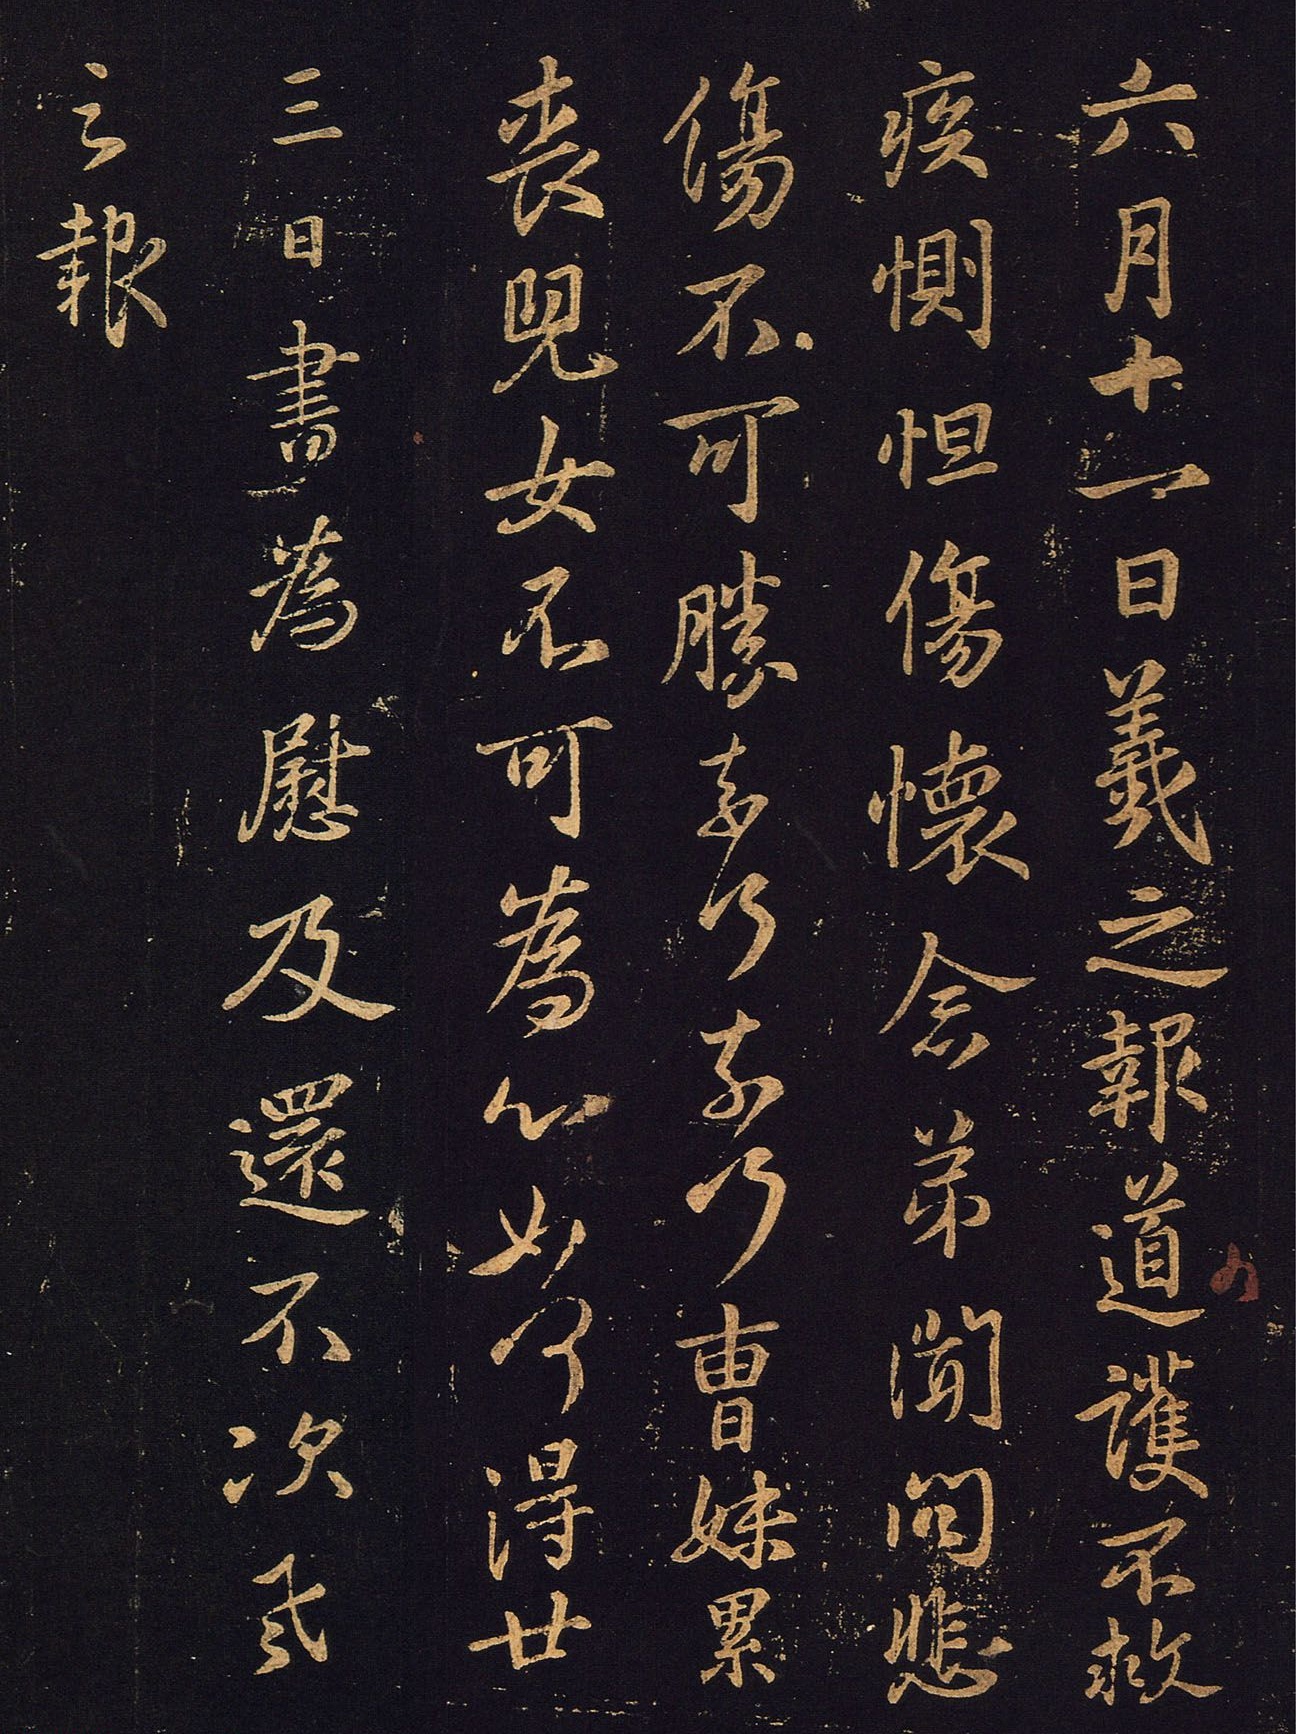 六月十一日羲之報道護不救
疾惻怛傷懷念弟聞問悲
傷不可勝奈何奈何曹妹累
喪兒女不可為心如何得廿
三日書為慰及還不次羲
之報